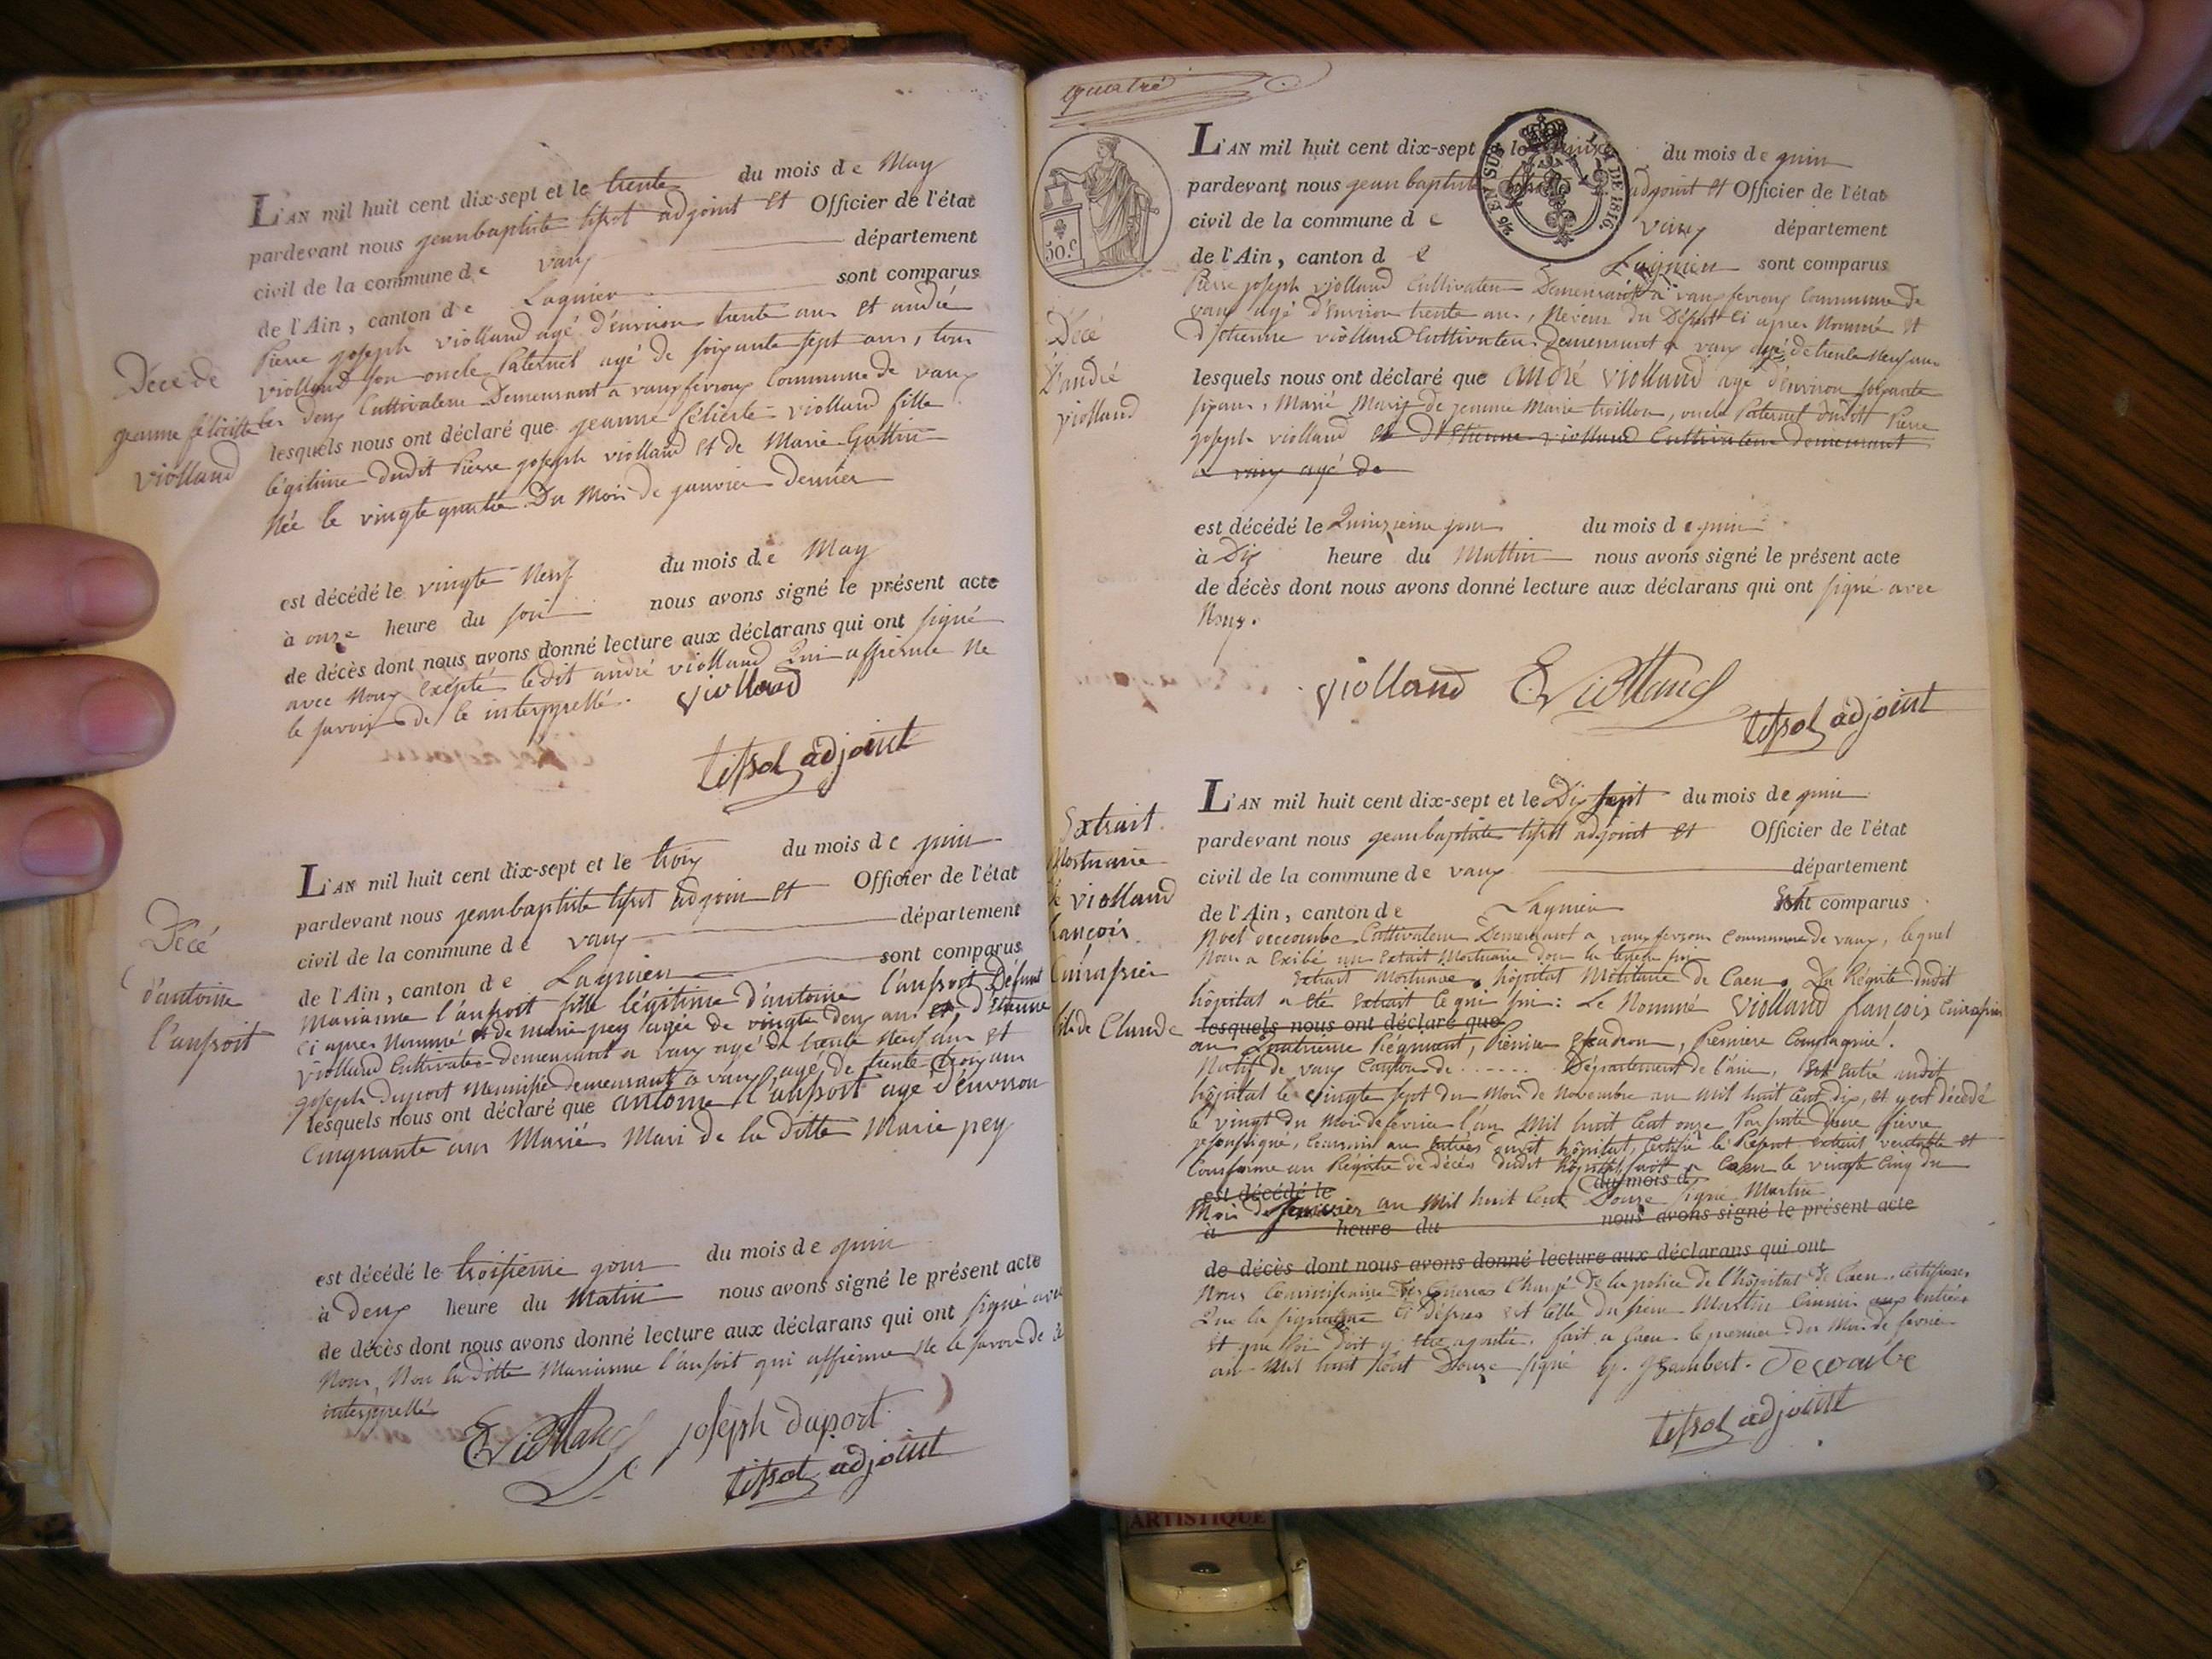 L'AN mil huit cent dix-sept et le trente du mois de May
pardevant nous jeanbaptiste tissot adjoint et Officier de l'état
civil de la commune de vaux département
de l'Ain, canton de Lagnieu sont comparus
Pierre joseph violland agé d'environ trente ans et andré
violland son oncle Paternel agé de soixante sept ans, tous
les deux Cultivateur Demeurant a vaux fevroux Commune de vaux
Décé de
jeanne féliciste
violland
lesquels nous ont déclaré que jeanne féliciste violland fille
légitime dudit Pierre joseph violland et de Marie Guttin
Née le vingte quatre Du Mois de janvier Dernier
est décédé le vingte Neuf du mois de May
à onze heure du soir nous avons signé le présent acte
de décès dont nous avons donné lecture aux déclarans qui ont signé
avec Nous Exépté ledit andré violland Qui affirme Ne
le savoir de ce interppellé. violland
tissot adjoint
L'AN mil huit cent dix-sept et le trois du mois de juin
pardevant nous jeanbaptiste tissot adjoin et Officier de l'état
civil de la commune de vaux département
de l'Ain, canton de Lagnieu sont comparus
Décé
d'antoine
l'anfroit
Marianne l'anfroit fille légitime d'antoine l'anfroit Défunt
Ci apres Nommé et de marie pey agée de vingte deux ans et d'Etienne
violland Cultivateur demeurant a vaux agé de trente Neuf ans et
joseph duport Menusié demeurant a vaux agé de trente trois ans
lesquels nous ont déclaré que antoine l'anfroit agé d'environ
Cinquante ans Marié Mari de la ditte Marie pey
est décédé le troisieme jour du mois de juin
à deux heure du Matin nous avons signé le présent acte
de décès dont nous avons donné lecture aux déclarans qui ont signé avec
Nous, Non la ditte Marianne l'anfroit qui affirme Ne le savoir de
interppellé
EViolland joseph duport
tissot adjoint
quatre
50.c
EN SUS
DE 1816
L'AN mil huit cent dix-sept du mois de juin
pardevant nous jean baptiste adjoint et Officier de l'état
civil de la commune de vaux département
de l'Ain, canton de Lagnieu sont comparus
Pierre joseph violland Cultivateur Demeurant a vaux fevroux Commune de
vaux agé d'environ trente ans, Neveux du Défunt Ci apres Nommé et
d'Etienne violland Cultivateur Demeurant a vaux agé de trente Neuf ans
Décé
D'andré
violland
lesquels nous ont déclaré que andré violland agé d'environ soixante
six ans, Marié Marij de jeanne Marie trollion, oncle Paternel dudit Pierre
joseph violland et d'Etienne violland Cultivateur Demeurant
a vaux agé de
est décédé le Quinzieme jour du mois de juin
à Dix heure du Mattin nous avons signé le présent acte
de décès dont nous avons donné lecture aux déclarans qui ont signé avec
Nous.
violland EViolland
tissot adjoint
L'AN mil huit cent dix-sept et le Dix sept du mois de juin
pardevant nous jeanbaptiste tissot adjoint et Officier de l'état
civil de la commune de vaux département
de l'Ain, canton de Lagnieu Est comparus
Extrait
Mortuaire
de violland
françois
Cuirassier
fils de Claude
Noel decombe Cultivateur Demeurant a vaux fevroux Commune de vaux, lequel
Nous a Exibé un Extait Mortuaire dont la teneur suit
Extrait Mortuaire, hôpital Militaire de Caen, Du Régitre dudit
hôpital a été Extrait Ce qui suit: Le Nommé violland françois Cuirassier
lesquels nous ont déclaré que
au Quatrieme Régiment, Premier Escadron, Premiere Compagnie.
Natif de vaux Canton de ...... Département de l'ain, Est Entré audit
hôpital le vingte sept du Mois de Novembre an mil huit Cent dix, et y est décédé
le vingt du Mois de fevrier l'an Mil huit Cent onze Par suite d'une fievre
je soussigné, Commis au Entrées dudit hôpital, Certifie le Présent Extrait veritable et
Conforme au Régitre de décés dudit hôpital, fait a Caen le vingte cinq du
est décédé le du mois d
Mois de janvier an Mil huit Cent Douze signé Martin
à heure du nous avons signé le présent acte
de décès dont nous avons donné lecture aux déclarans qui ont
Nous Commissaire des Guerres Chargé de la police de l'hôpital de Caen, Certifions
Que la signature Ci dessus est Celle du sieur Martin Commis aux Entrées
et que foi Doit y être ajoutée. fait a Caen le premier du Mois de fevrier
an Mil huit Cent Douze signé Decombe
tissot adjoint
ARTISTIQUE